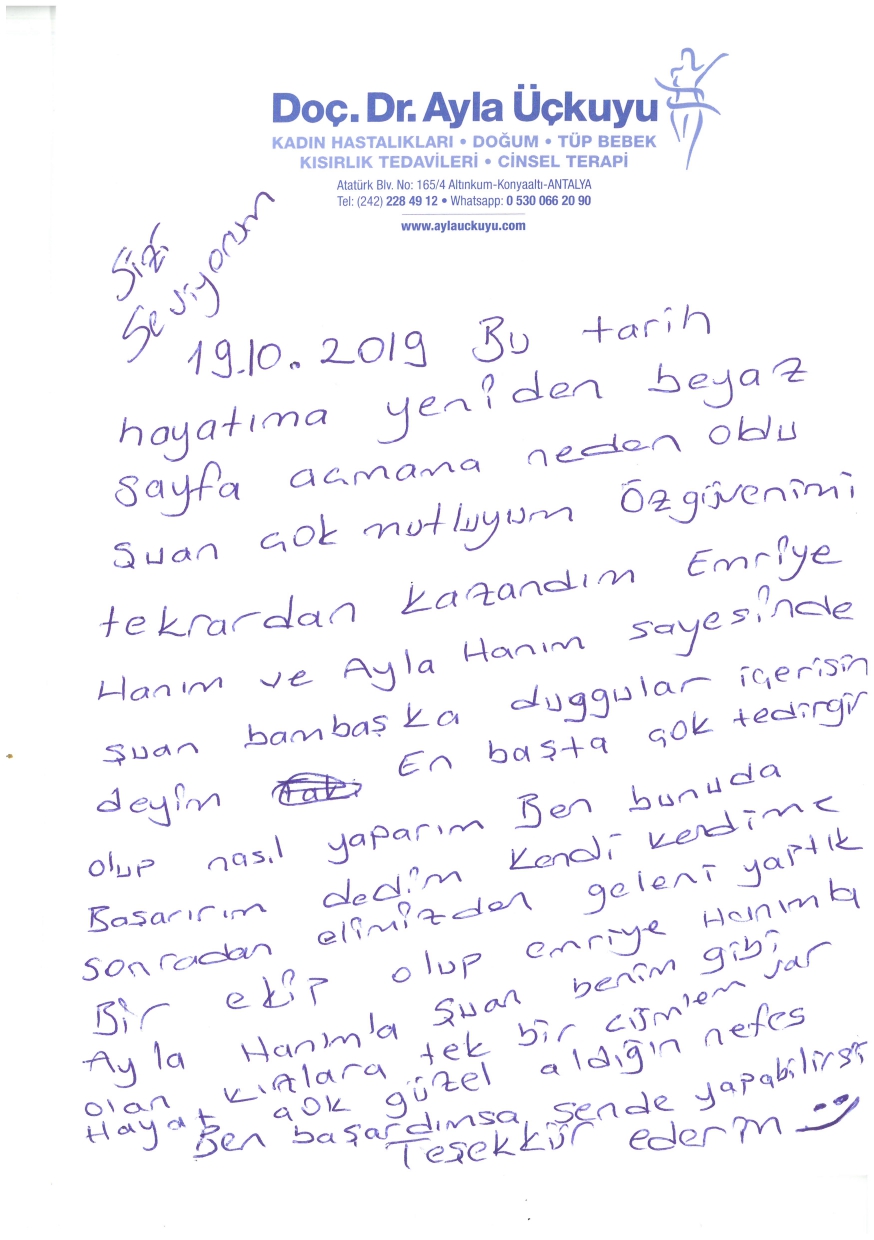 Doç. Dr. Ayla Üçkuyu
KADIN HASTALIKLARI • DOĞUM • TÜP BEBEK
KISIRLIK TEDAVİLERİ • CİNSEL TERAPİ
Atatürk Blv. No: 165/4 Altınkum-Konyaaltı-ANTALYA
Tel: (242) 228 49 12 • Whatsapp: 0 530 066 20 90
www.aylauckuyu.com
Sizi
Seviyorum
19.10.2019 Bu tarih
hayatıma yeniden beyaz
sayfa açmama neden oldu
Şuan çok mutluyum Özgüvenimi
tekrardan kazandım Emriye
Hanım ve Ayla Hanım sayesinde
şuan bambaşka duggular içerisin
deyim En başta çok tedirgin
olup nasıl yaparım Ben bunuda
Başarırım dedim kendi kendime
sonradan elimizden geleni yaptık
Bir ekip olup emriye Hanımla
Ayla Hanım'la Şuan benim gibi
olan kızlara tek bir cümlem var
Hayat çok güzel aldığın nefes
Ben başardımsa sende yapabilirsi
Teşekkür ederim